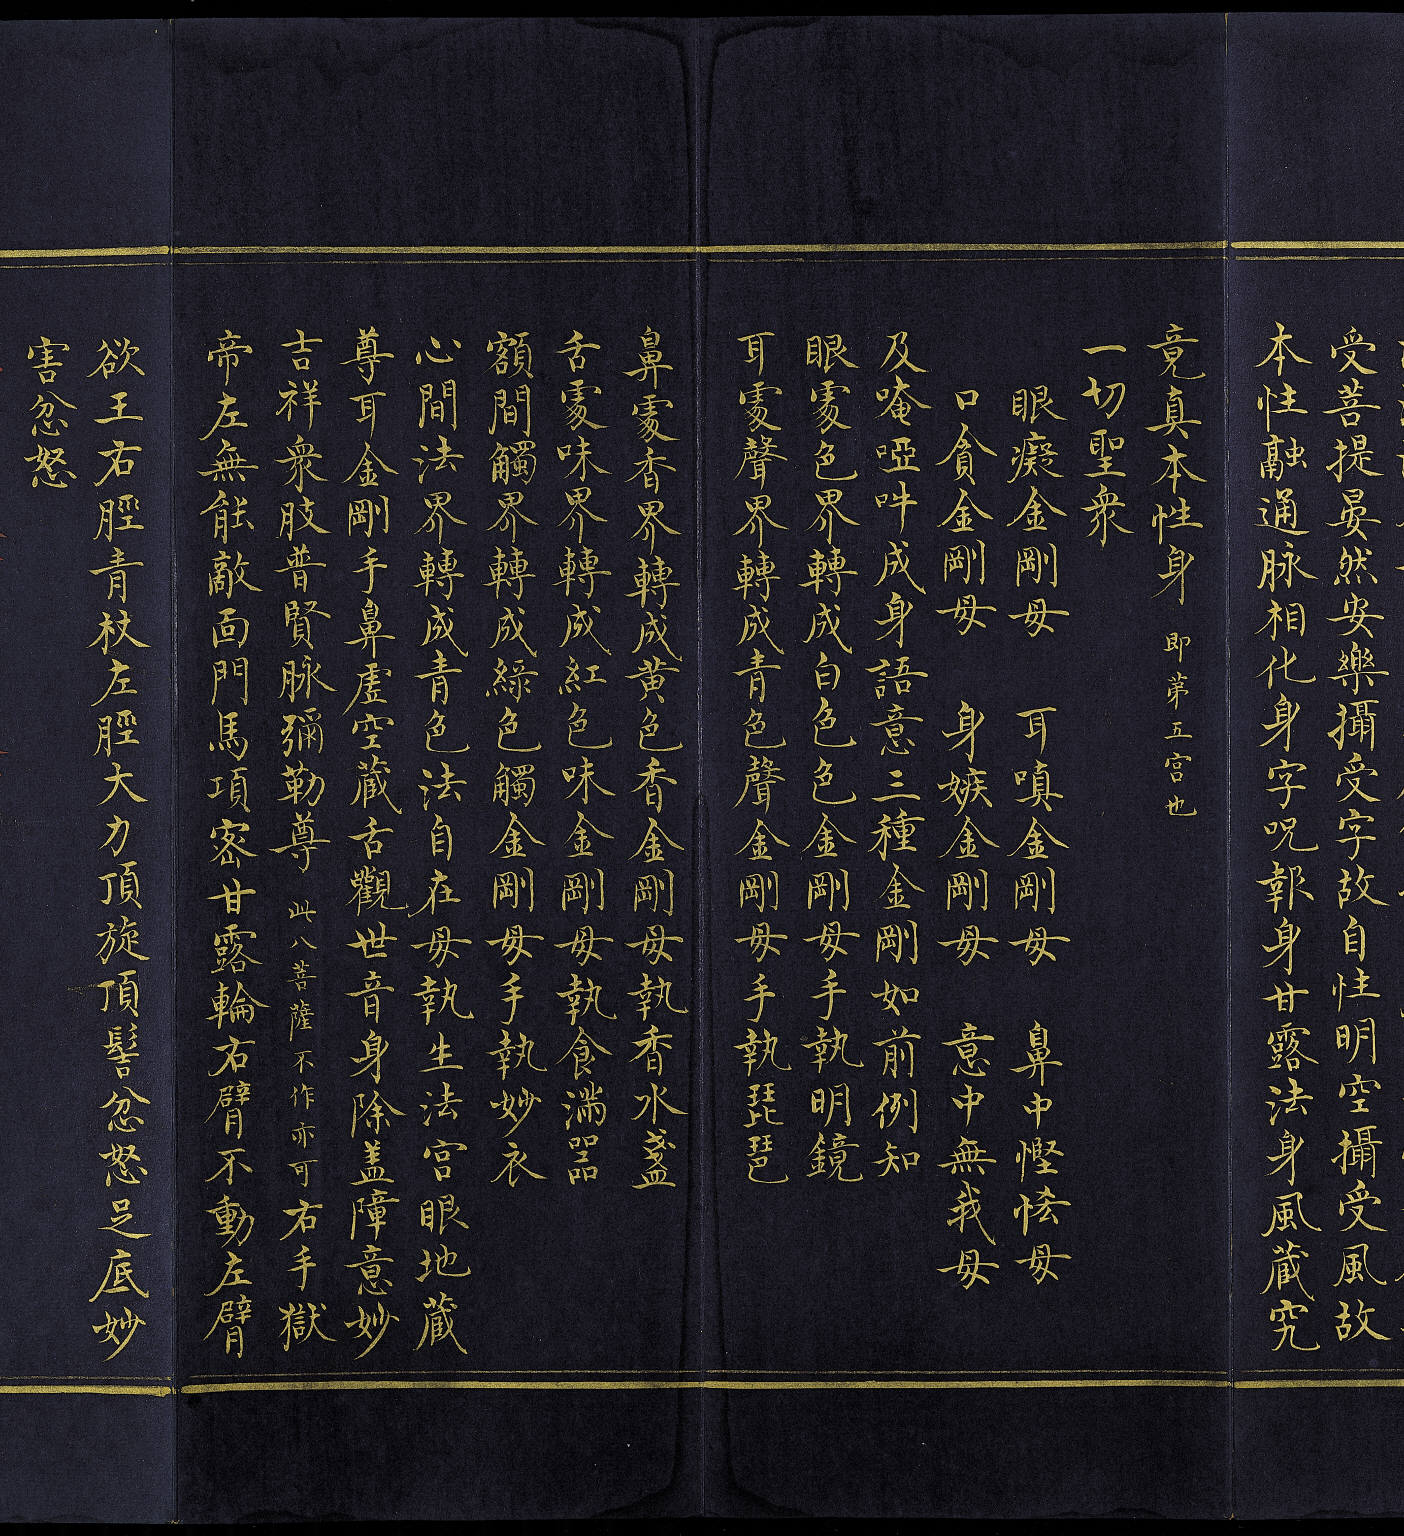 受菩提晏然安樂攝受字故自性明空攝受風故
本性融通脉相化身字呪報身甘露法身風藏究
竟真本性身 即苐五宫也
一切聖衆
眼癡金剛母 耳嗔金剛母 鼻中慳悋母
口貪金剛母 身嫉金剛母 意中無我母
及唵啞吽成身語意三種金剛如前例知
眼䖏色界轉成白色色金剛母手執明鏡
耳䖏聲界轉成青色聲金剛母手執琵琶
鼻䖏香界轉成黄色香金剛母執香水盞
舌䖏味界轉成紅色味金剛母執食滿器
額間觸界轉成綠色觸金剛母手執妙衣
心間法界轉成青色法自在母執生法宫眼地藏
尊耳金剛手鼻虛空藏舌觀世音身除盖障意妙
吉祥衆肢普賢脉彌勒尊 此八菩薩不作亦可 右手獄
帝左無能敵面門馬項密甘露輪右臂不動左臂
欲王右脛青杖左脛大力頂旋頂髻忿怒足底妙
害忿怒